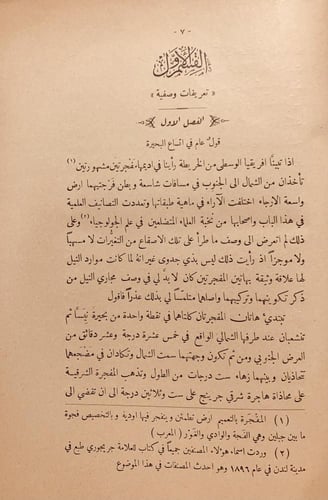 - ٧ -
القسم الأول
« تعريفات وصفية »
الفصل الاول
قول عام في اتساع البحيرة
اذا تبينا افريقيا الوسطى من الخريطة رأينا في اديمها مفجرتين مشهورتين (١)
تأخذان من الشمال الى الجنوب في مسافات شاسعة و بطن فرجتيهما ارض
واسعة الارجاء اختلفت الآراء في ماهية طبقاتها وتعددت التصانيف العلمية
في هذا الباب واصحابها من نخبة العلماء المتضلعين في علم الجولوجياء (٢) وعلى
ذلك لم اتعرض الى وصف ما طرأ على تلك الاصقاع من التغيرات لا مسهباً
ولا موجزاً اذ رأيت ذلك ليس بذي جدوى غيرانه لما كانت موارد النيل
لها علاقة وثيقة بهاتين المفجرتين كان لابد لي في وصف مجاري النيل من
ذكر تكوينهما وتركيبهما واصلهما ملتمساً لي بذلك عذراً فاقول
تبتدئ هاتان المفجرتان كلتاهما في نقطة واحدة من بحيرة نيسا ثم
تنشعبان عند طرفها الشمالي الواقع في خمس عشرة درجة وعشر دقائق من
العرض الجنوبي ومن ثم تكون وجهتهما سمت الشمال وتكادان في مضجعهما
تتحاذيان وبينهما زهاء ست درجات من الطول وتذهب المفجرة الشرقية
على محاذاة هاجرة شرقي جرينج على ست وثلاثين درجة الى ان تفضي الى
(١) المفجرة بالتعميم ارض تطمئن وينفجر فيها اودية و بالتخصيص فجوة
ما بين جبلين وهي الفجة والوادي والغور ( المعرب )
(٢) وردت اسماء هؤلاء المصنفين جميعاً في كتاب للعلامة جريجوري طبع في
مدينة لندن في عام ١٨٩٦ وهو احدث المصنفات في هذا الموضوع